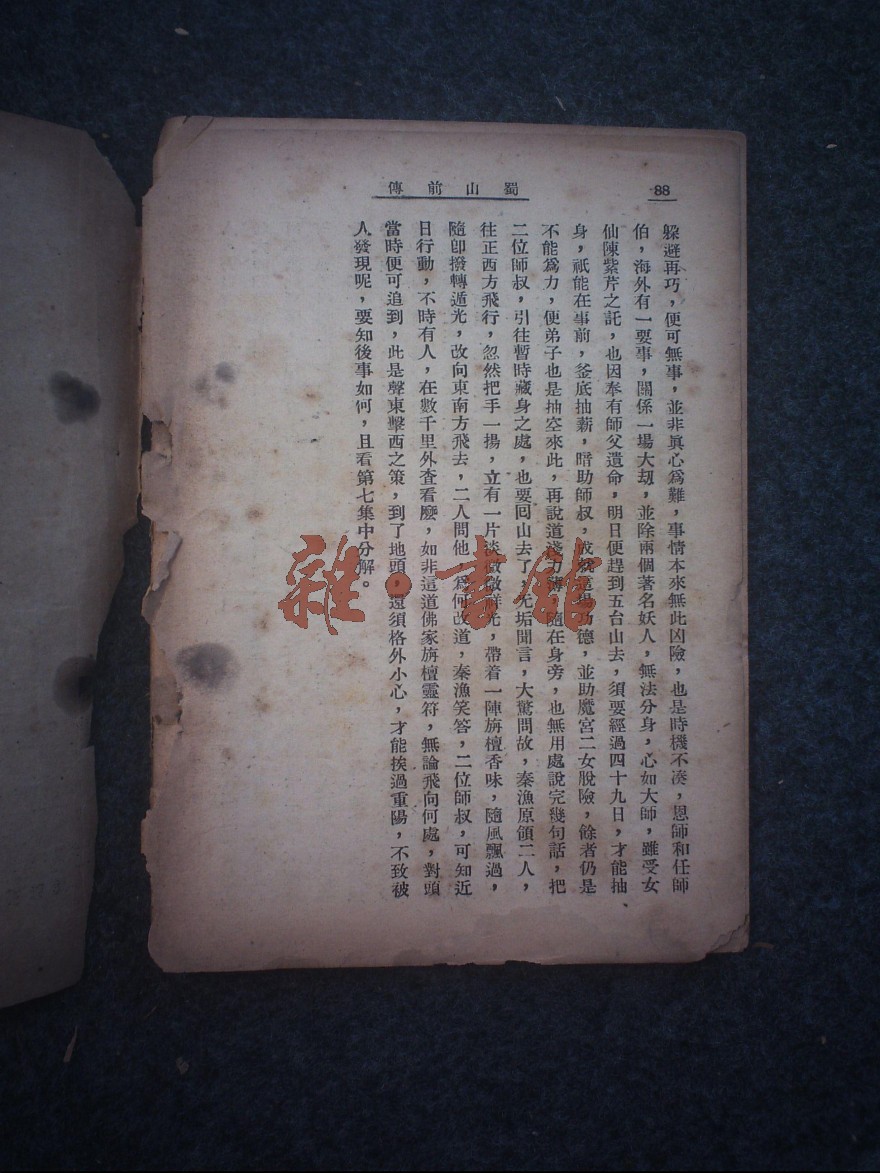 88
蜀山前傳
躱避再巧，便可無事，並非眞心爲難，事情本來無此凶險，也是時機不凑，恩師和任師
伯，海外有一要事，關係一場大刼，並除兩個著名妖人，無法分身，心如大師，雖受女
仙陳紫芹之託，也因奉有師父遺命，明日便趕到五台山去，須要經過四十九日，才能抽
身，祇能在事前，釜底抽薪，暗助師叔，成就這場功德，並助魔宮二女脫險，餘者仍是
不能爲力，便弟子也是抽空來此，再說道淺力薄，隨在身旁，也無用處說完幾句話，把
二位師叔，引往暫時藏身之處，也要囘山去了，无垢聞言，大驚問故，秦漁原領二人，
往正西方飛行，忽然把手一揚，立有一片淡微微祥光，帶着一陣旃檀香味，隨風飄過，
隨卽撥轉遁光，改向東南方飛去，二人問他，爲何改道，秦漁笑答，二位師叔，可知近
日行動，不時有人，在數千里外查看麽，如非這道佛家旃檀靈符，無論飛向何處，對頭
當時便可追到，此是聲東擊西之策，到了地頭，還須格外小心，才能挨過重陽，不致被
人發現呢，要知後事如何，且看第七集中分解。
雜·書館